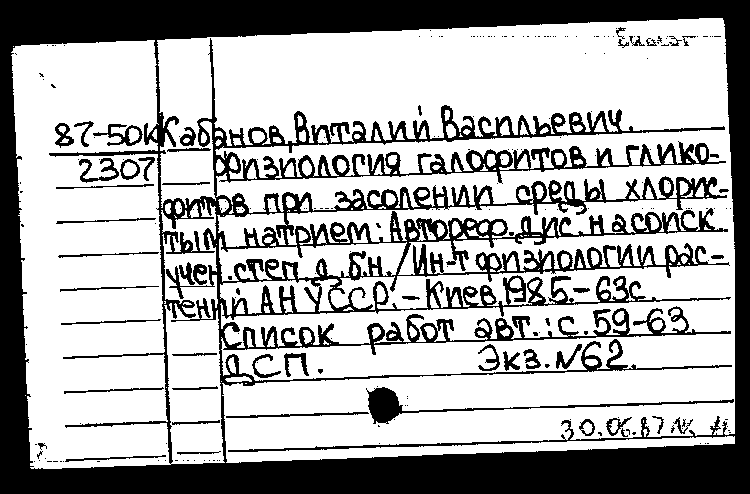 Биолог
87-50К Кабанов, Виталий Васильевич.
2307 Физиология галофитов и глико-
фитов при засолении среды хлорис-
тым натрием: Автореф. дис. на соиск.
учен. степ. д.б.н. / Ин-т физиологии рас-
тений АН УССР. - Киев, 1985. - 63с.
Список работ авт.: с. 59-63.
ДСП. Экз. №62.
30.06.87